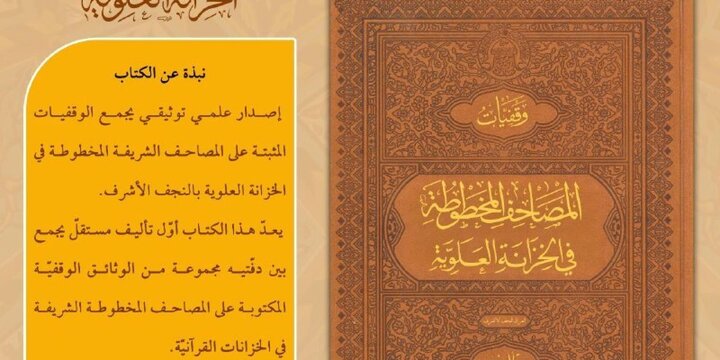 الخزانة العلوية
نبذة عن الكتاب
إصدار علمي توثيقي يجمع الوقفيات
المثبتة على المصاحف الشريفة المخطوطة في
الخزانة العلوية بالنجف الأشرف.
يعدّ هذا الكتاب أوّل تأليف مستقلّ يجمع
بين دفّتيه مجموعة من الوثائق الوقفيّة
المكتوبة على المصاحف المخطوطة الشريفة
في الخزانات القرآنيّة.
وَقفيّات
المصَاحِف المَخطُوطَة
في الخِزانَة العَلَويّة